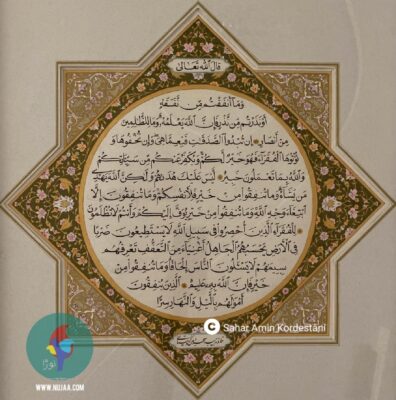 قال الله تعالى
وَمَا أَنفَقْتُم مِّن نَّفَقَةٍ
أَوْ نَذَرْتُم مِّن نَّذْرٍ فَإِنَّ اللَّهَ يَعْلَمُهُ وَمَا لِلظَّالِمِينَ
مِنْ أَنصَارٍ إِن تُبْدُوا الصَّدَقَاتِ فَنِعِمَّا هِيَ وَإِن تُخْفُوهَا وَ
تُؤْتُوهَا الْفُقَرَاءَ فَهُوَ خَيْرٌ لَّكُمْ وَيُكَفِّرُ عَنكُم مِّن سَيِّئَاتِكُمْ
وَاللَّهُ بِمَا تَعْمَلُونَ خَبِيرٌ لَّيْسَ عَلَيْكَ هُدَاهُمْ وَلَكِنَّ اللَّهَ يَهْدِي
مَن يَشَاءُ وَمَا تُنفِقُوا مِنْ خَيْرٍ فَلِأَنفُسِكُمْ وَمَا تُنفِقُونَ إِلَّا
ابْتِغَاءَ وَجْهِ اللَّهِ وَمَا تُنفِقُوا مِنْ خَيْرٍ يُوَفَّ إِلَيْكُمْ وَأَنتُمْ لَا تُظْلَمُونَ
لِلْفُقَرَاءِ الَّذِينَ أُحْصِرُوا فِي سَبِيلِ اللَّهِ لَا يَسْتَطِيعُونَ ضَرْبًا
فِي الْأَرْضِ يَحْسَبُهُمُ الْجَاهِلُ أَغْنِيَاءَ مِنَ التَّعَفُّفِ تَعْرِفُهُم
بِسِيمَاهُمْ لَا يَسْأَلُونَ النَّاسَ إِلْحَافًا وَمَا تُنفِقُوا مِنْ
خَيْرٍ فَإِنَّ اللَّهَ بِهِ عَلِيمٌ الَّذِينَ يُنفِقُونَ
أَمْوَالَهُم بِاللَّيْلِ وَالنَّهَارِ سِرًّا
© Sahar Amin Kordestani
نوژا
WWW.NUJAA.COM